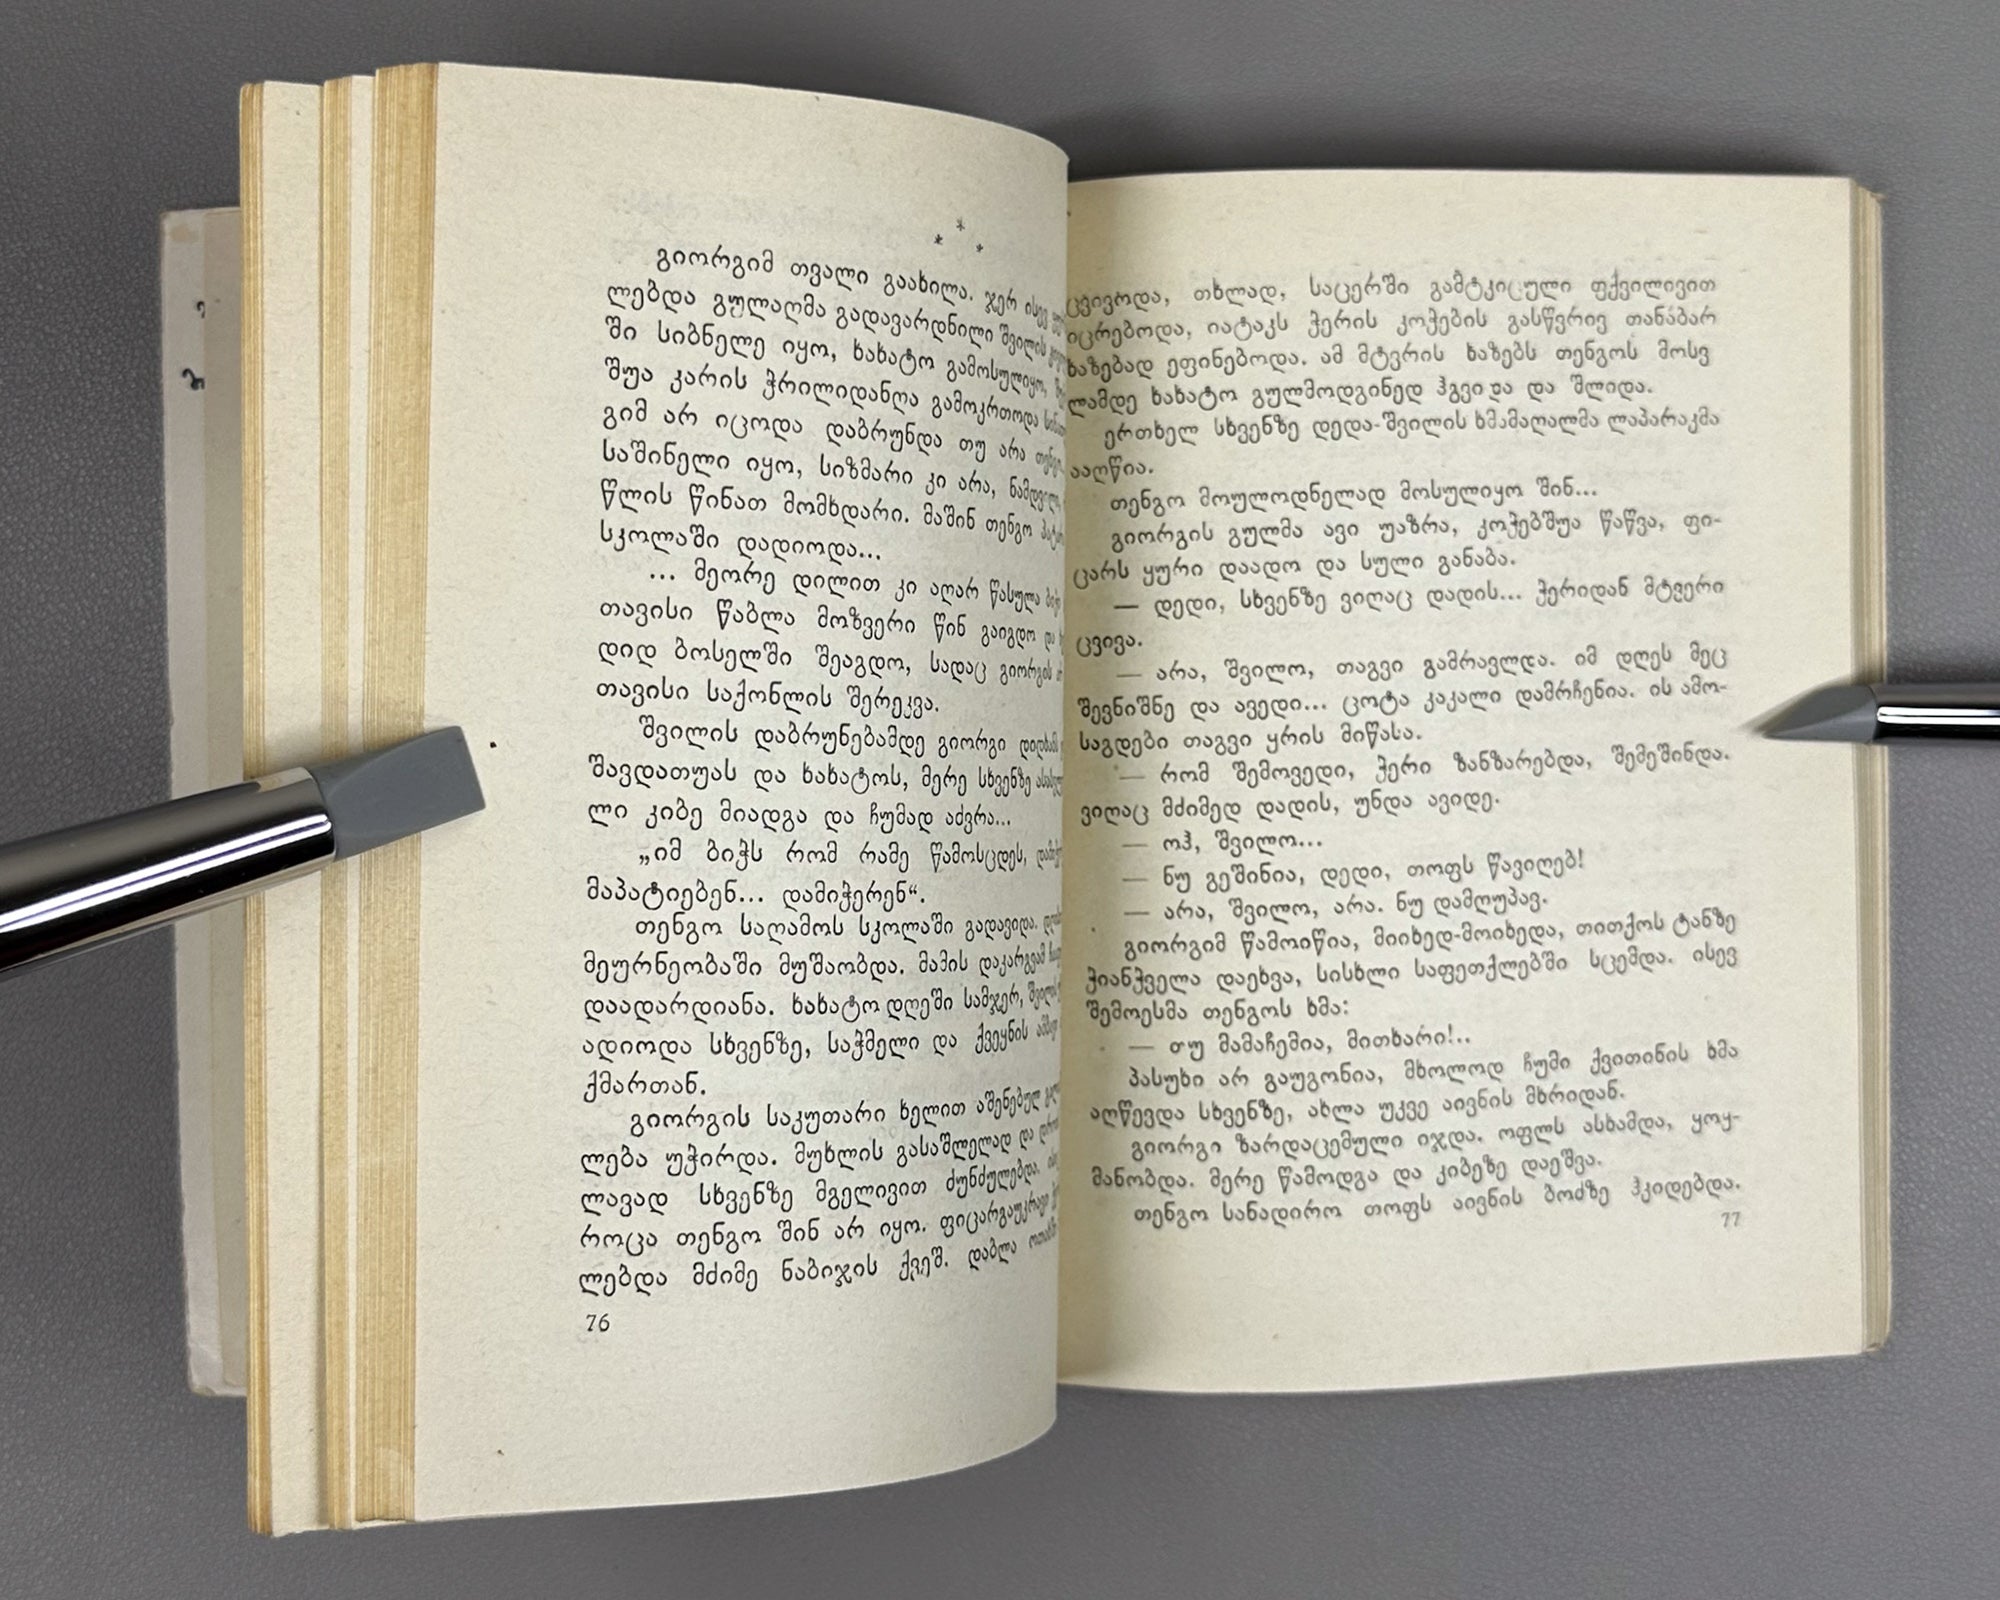 * * *
გიორგიმ თვალი გაახილა. ჯერ ისევ
ლებდა გულაღმა გადავარდნილი შვილის
ში სიბნელე იყო, ხახატო გამოსულიყო,
შუა კარის ჭრილიდანღა გამოკრთოდა
გიმ არ იცოდა დაბრუნდა თუ არა თენგო.
საშინელი იყო, სიზმარი კი არა, ნამდვილი,
წლის წინათ მომხდარი. მაშინ თენგო
სკოლაში დადიოდა...
... მეორე დილით კი აღარ წასულა
თავისი წაბლა მოზვერი წინ გაიგდო და
დიდ ბოსელში შეაგდო, სადაც გიორგის
თავისი საქონლის შერეკვა.
შვილის დაბრუნებამდე გიორგი
შავდათუას და ხახატოს, მერე სხვენზე
ლი კიბე მიადგა და ჩუმად აძვრა...
„იმ ბიჭს რომ რამე წამოსცდეს,
მაპატიებენ... დამიჭერენ“.
თენგო საღამოს სკოლაში გადავიდა.
მეურნეობაში მუშაობდა. მამის დაკარგვამ
დაადარდიანა. ხახატო დღეში სამჯერ,
ადიოდა სხვენზე, საჭმელი და ქვეყნის
ქმართან.
გიორგის საკუთარი ხელით აშენებულ
ლება უჭირდა. მუხლის გასაშლელად და
ლავად სხვენზე მგელივით ძუნძულებდა.
როცა თენგო შინ არ იყო. ფიცარგაუკრავი
ლებდა მძიმე ნაბიჯის ქვეშ. დაბლა
76
ცვივოდა, თხლად, საცერში გამტკიცული ფქვილივით
იცრებოდა, იატაკს ჭერის კოჭების გასწვრივ თანაბარ
ხაზებად ეფინებოდა. ამ მტვრის ხაზებს თენგოს მოსვ
ლამდე ხახატო გულმოდგინედ ჰგვიდა და შლიდა.
ერთხელ სხვენზე დედა-შვილის ხმამაღალმა ლაპარაკმა
ააღწია.
თენგო მოულოდნელად მოსულიყო შინ...
გიორგის გულმა ავი უაზრა, კოჭებშუა წაწვა, ფი-
ცარს ყური დაადო და სული განაბა.
— დედი, სხვენზე ვიღაც დადის... ჭერიდან მტვერი
ცვივა.
— არა, შვილო, თაგვი გამრავლდა. იმ დღეს მეც
შევნიშნე და ავედი... ცოტა კაკალი დამრჩენია. ის ამო-
საგდები თაგვი ყრის მიწასა.
— რომ შემოვედი, ჭერი ზანზარებდა, შემეშინდა.
ვიღაც მძიმედ დადის, უნდა ავიდე.
— ოჰ, შვილო...
— ნუ გეშინია, დედი, თოფს წავიღებ!
— არა, შვილო, არა. ნუ დამღუპავ.
გიორგიმ წამოიწია, მიიხედ-მოიხედა, თითქოს ტანზე
ჭიანჭველა დაეხვა, სისხლი საფეთქლებში სცემდა. ისევ
შემოესმა თენგოს ხმა:
— თუ მამაჩემია, მითხარი!..
პასუხი არ გაუგონია, მხოლოდ ჩუმი ქვითინის ხმა
აღწევდა სხვენზე, ახლა უკვე აივნის მხრიდან.
გიორგი ზარდაცემული იჯდა. ოფლს ასხამდა, ყოყ-
მანობდა. მერე წამოდგა და კიბეზე დაეშვა.
თენგო სანადირო თოფს აივნის ბოძზე ჰკიდებდა.
77